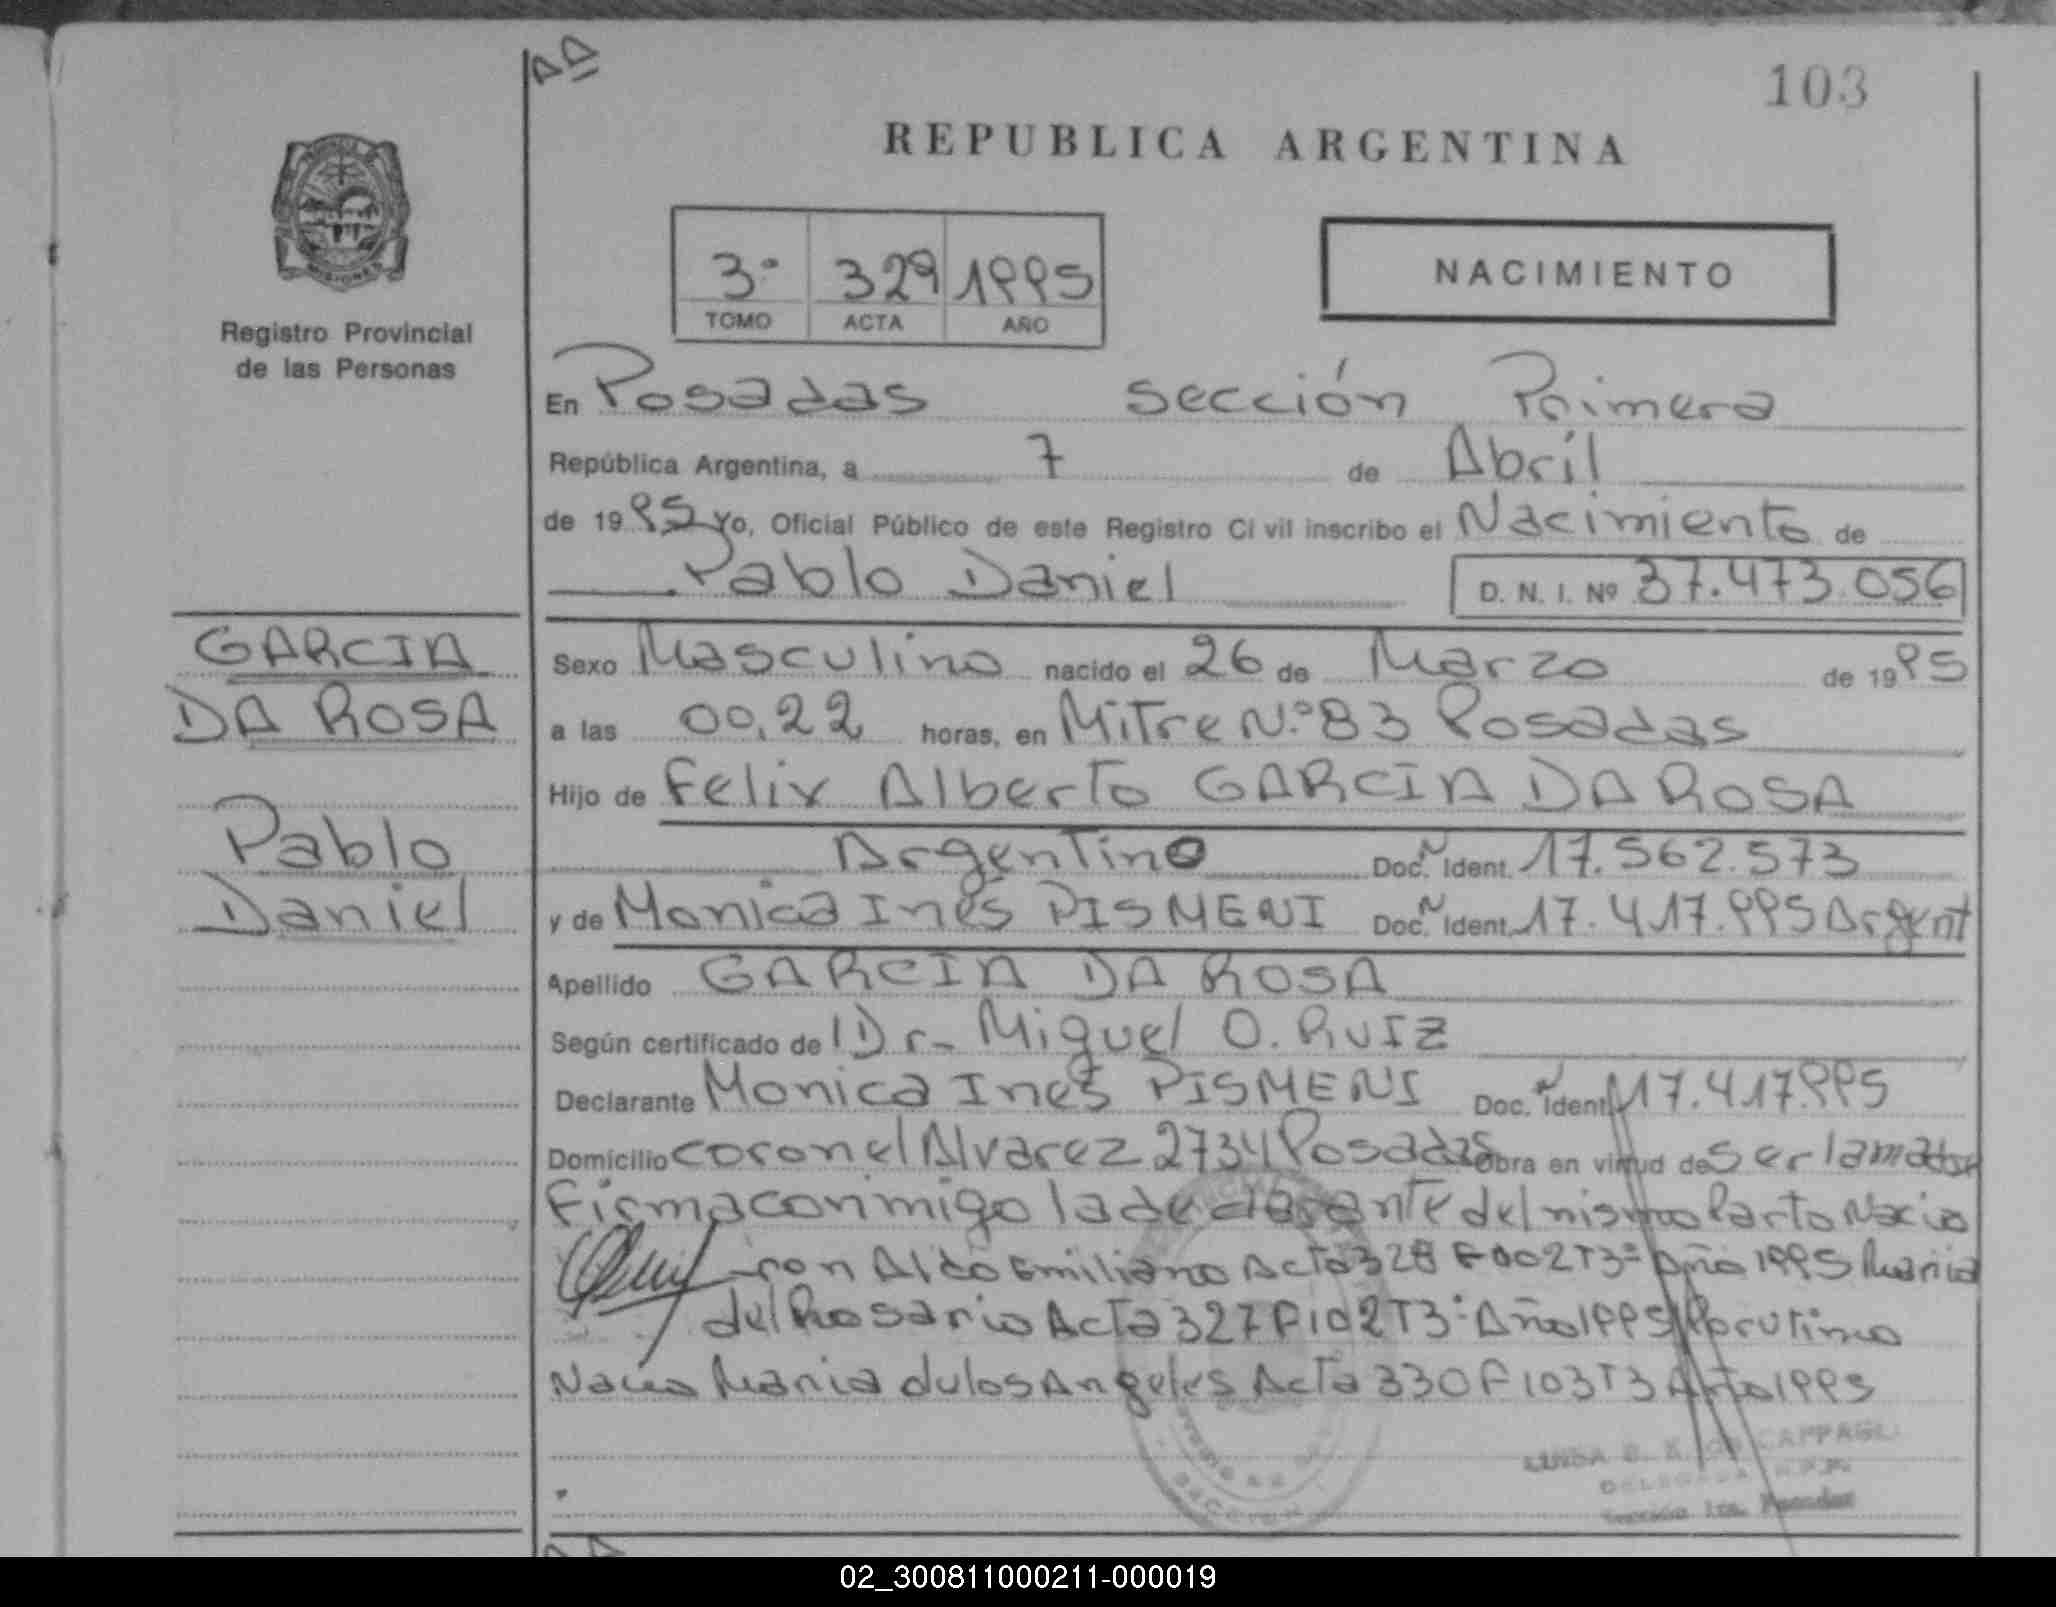 103
REPUBLICA ARGENTINA
MISIONES
Registro Provincial
de las Personas
3º 329 1995
TOMO ACTA AÑO
NACIMIENTO
En Posadas sección Primera
República Argentina, a 7 de Abril
de 1995 Yo, Oficial Público de este Registro Civil inscribo el Nacimiento de
Pablo Daniel D. N. I. Nº 37.473.056
GARCIA
DA ROSA
Pablo
Daniel
Sexo Masculino nacido el 26 de Marzo de 1995
a las 00,22 horas, en Mitre N.º 83 Posadas
Hijo de Felix Alberto GARCIA DA ROSA
Argentino Doc. Ident. 17.562.573
y de Monica Inés PISMENI Doc. Ident. 17.417.995 Argent
Apellido GARCIA DA ROSA
Según certificado de Dr. Miguel O. RUIZ
Declarante Monica Inés PISMENI Doc. Ident. 17.417.995
Domicilio coronel Alvarez 2734 Posadas Obra en virtud de ser la madre
Firma conmigo la declarante del mismo Parto Nacio
ron Aldo Emiliano Acta 328 F002T3º Año 1995 Maria
del Rosario Acta 327 F102T3º Año 1995 Por utimo
Nacio Maria de los Angeles Acta 330 F103T3 Año 1995
CAPPAGLI
Sección 1ra. Posadas
02_300811000211-000019